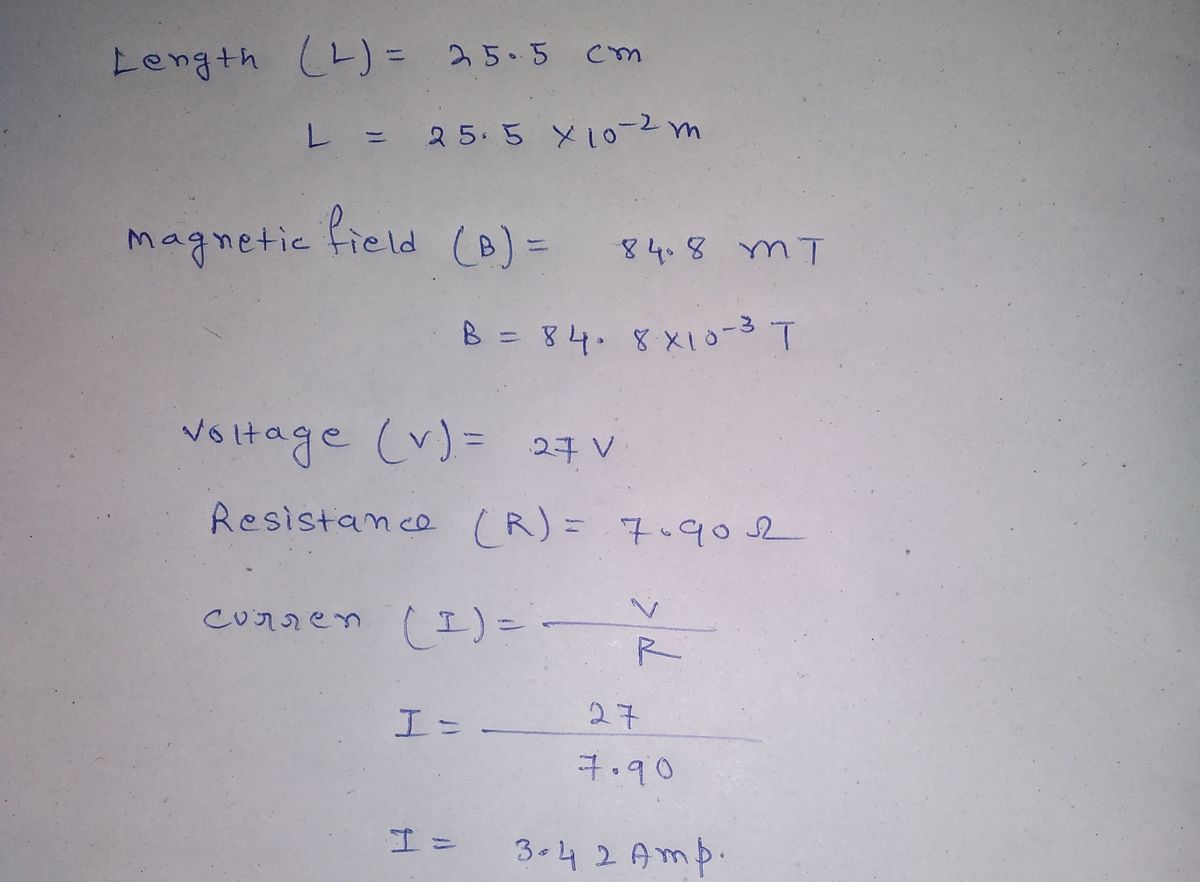 Length (L) = 25.5 cm
L = 25.5 ×10⁻² m
magnetic field (B) = 84.8 mT
B = 84.8×10⁻³ T
Voltage (V) = 27 V
Resistance (R) = 7.90 Ω
curren (I) = V/R
I = 27/7.90
I = 3.42 Amp.